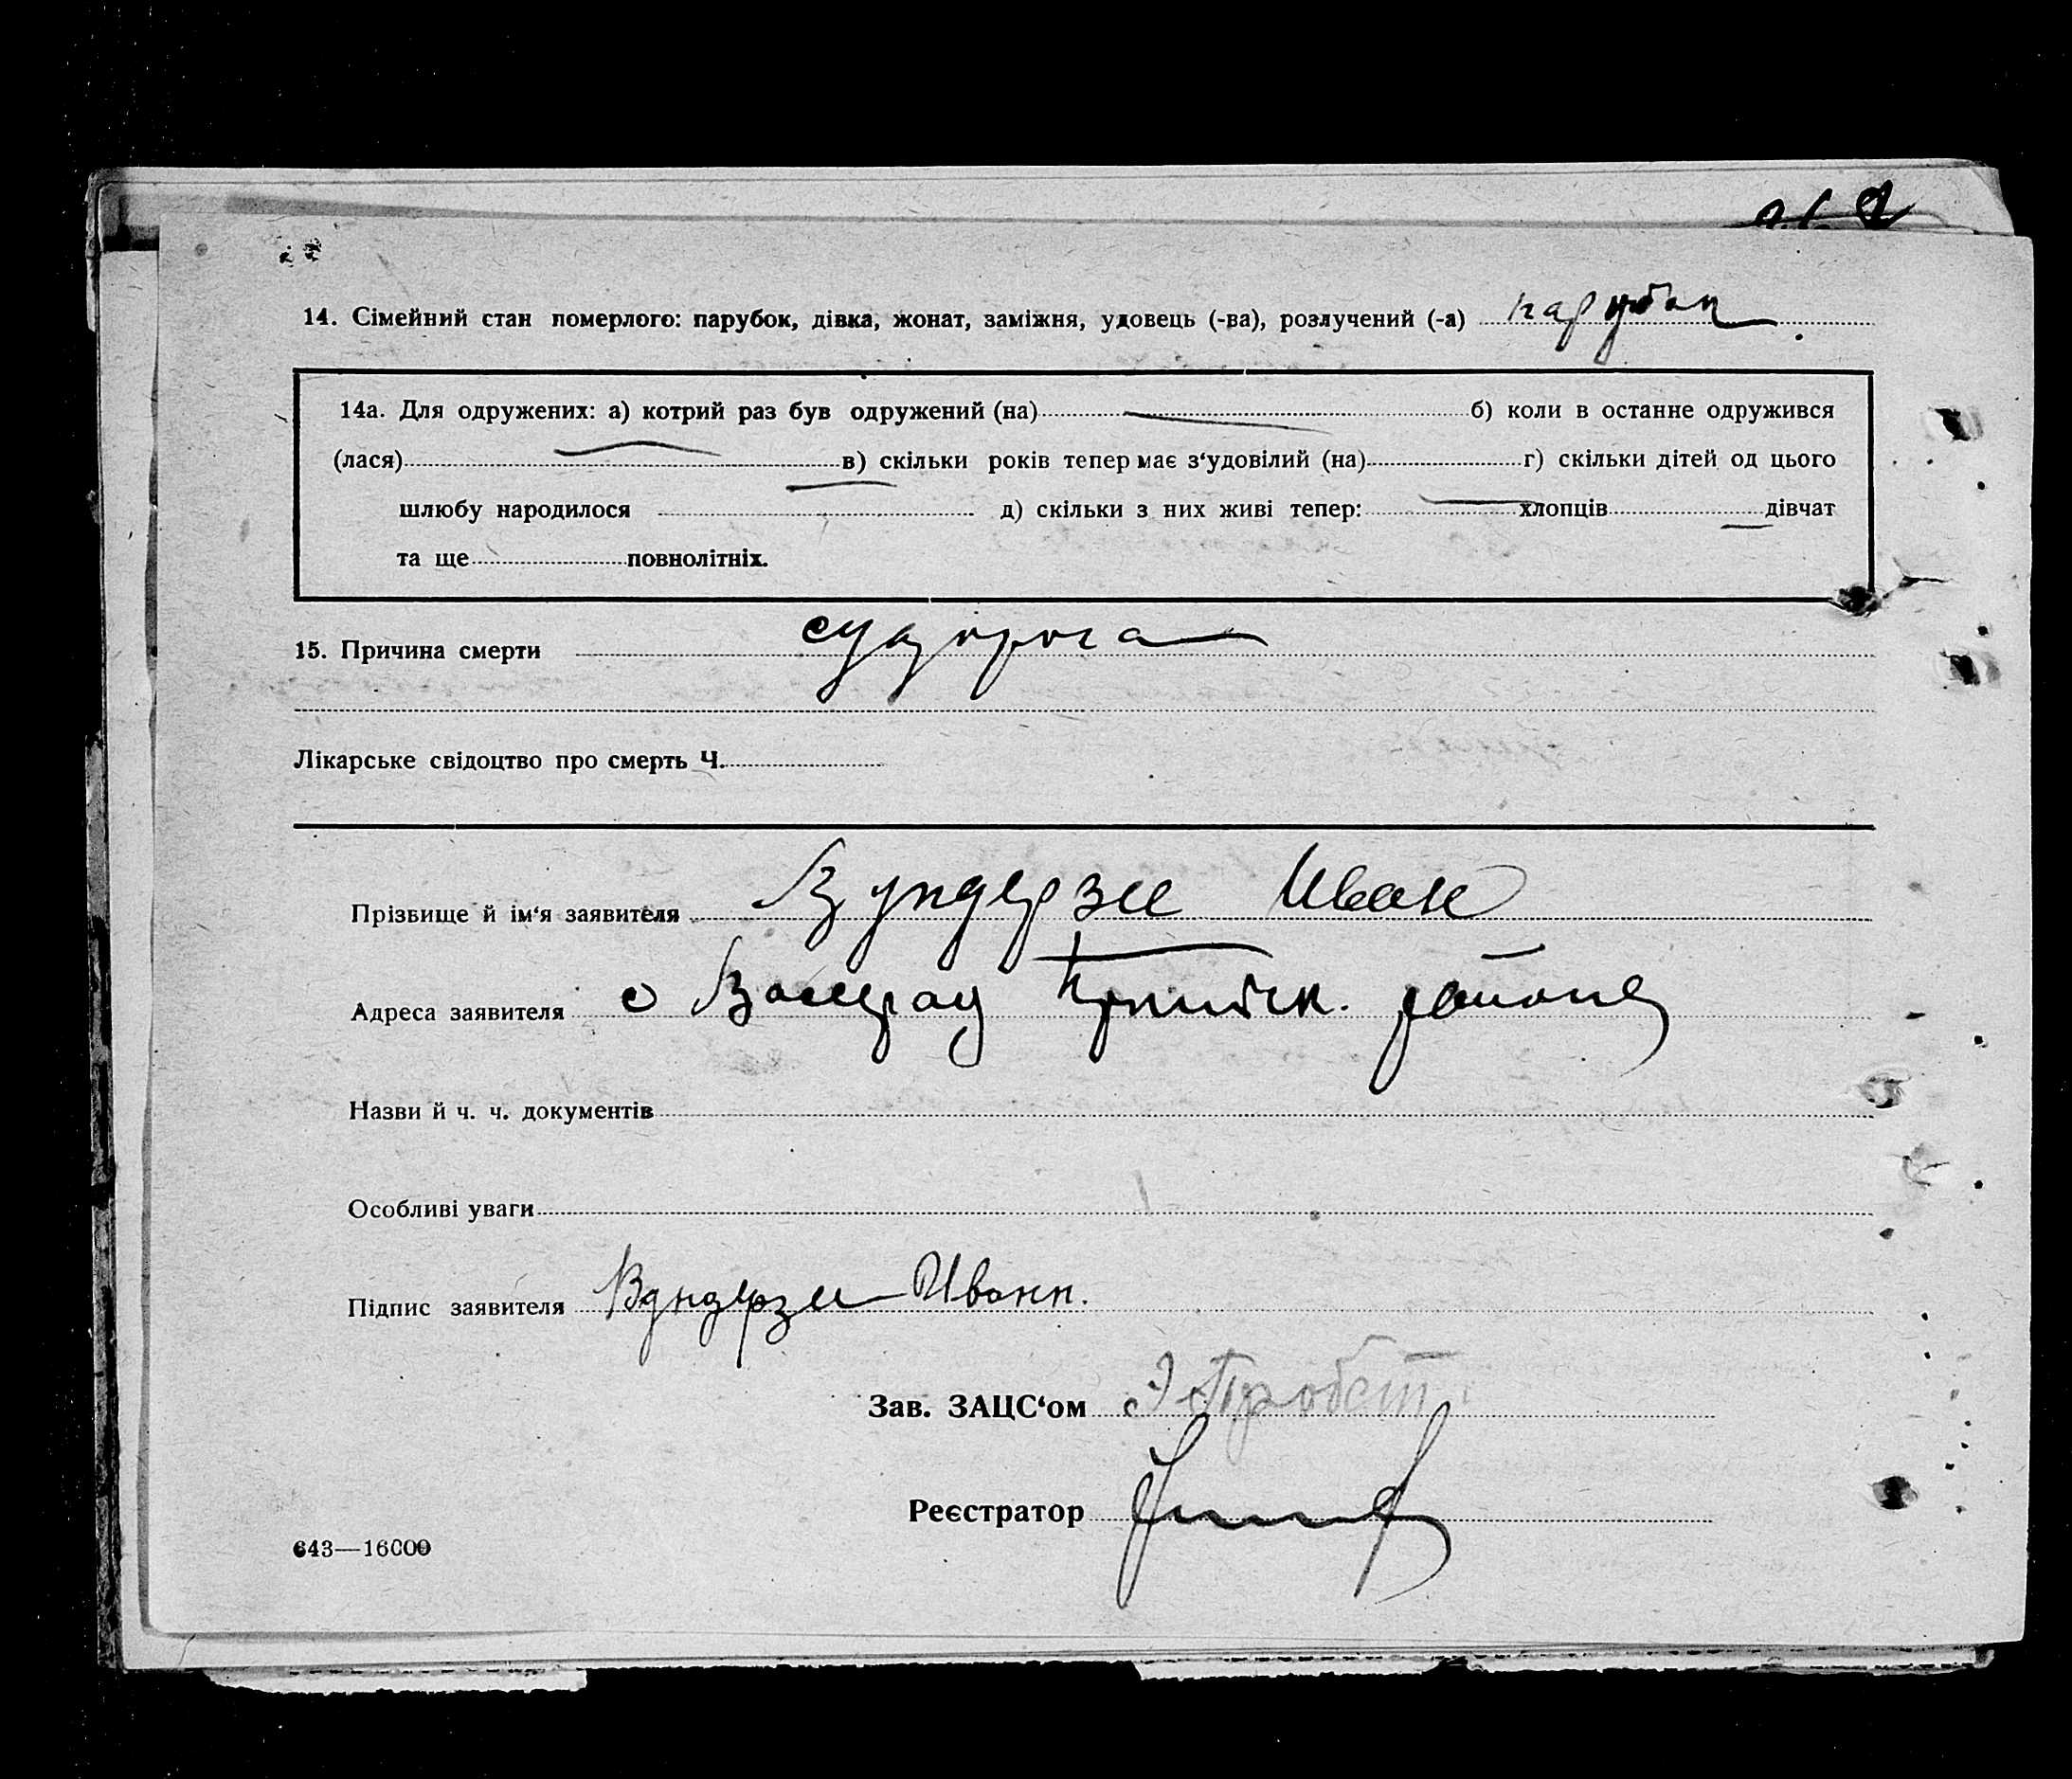 14. Сімейний стан померлого: парубок, дівка, жонат, заміжня, удовець (-ва), розлучений (-а) парубок.
14а. Для одружених: а) котрий раз був одружений (на) — б) коли в останне одружився
(лася) — в) скільки років тепер має з‘удовілий (на) г) скільки дітей од цього
шлюбу народилося — д) скільки з них живі тепер: — хлопців — дівчат
та ще повнолітніх.
15. Причина смерти судорога
Лікарське свідоцтво про смерть Ч.
Прізвище й ім‘я заявителя Вундерзее Иван
Адреса заявителя с района
Назви й ч. ч. документів
Особливі уваги
Підпис заявителя Иванн.
Зав. ЗАЦС‘ом Пробст
Реєстратор
643—16000